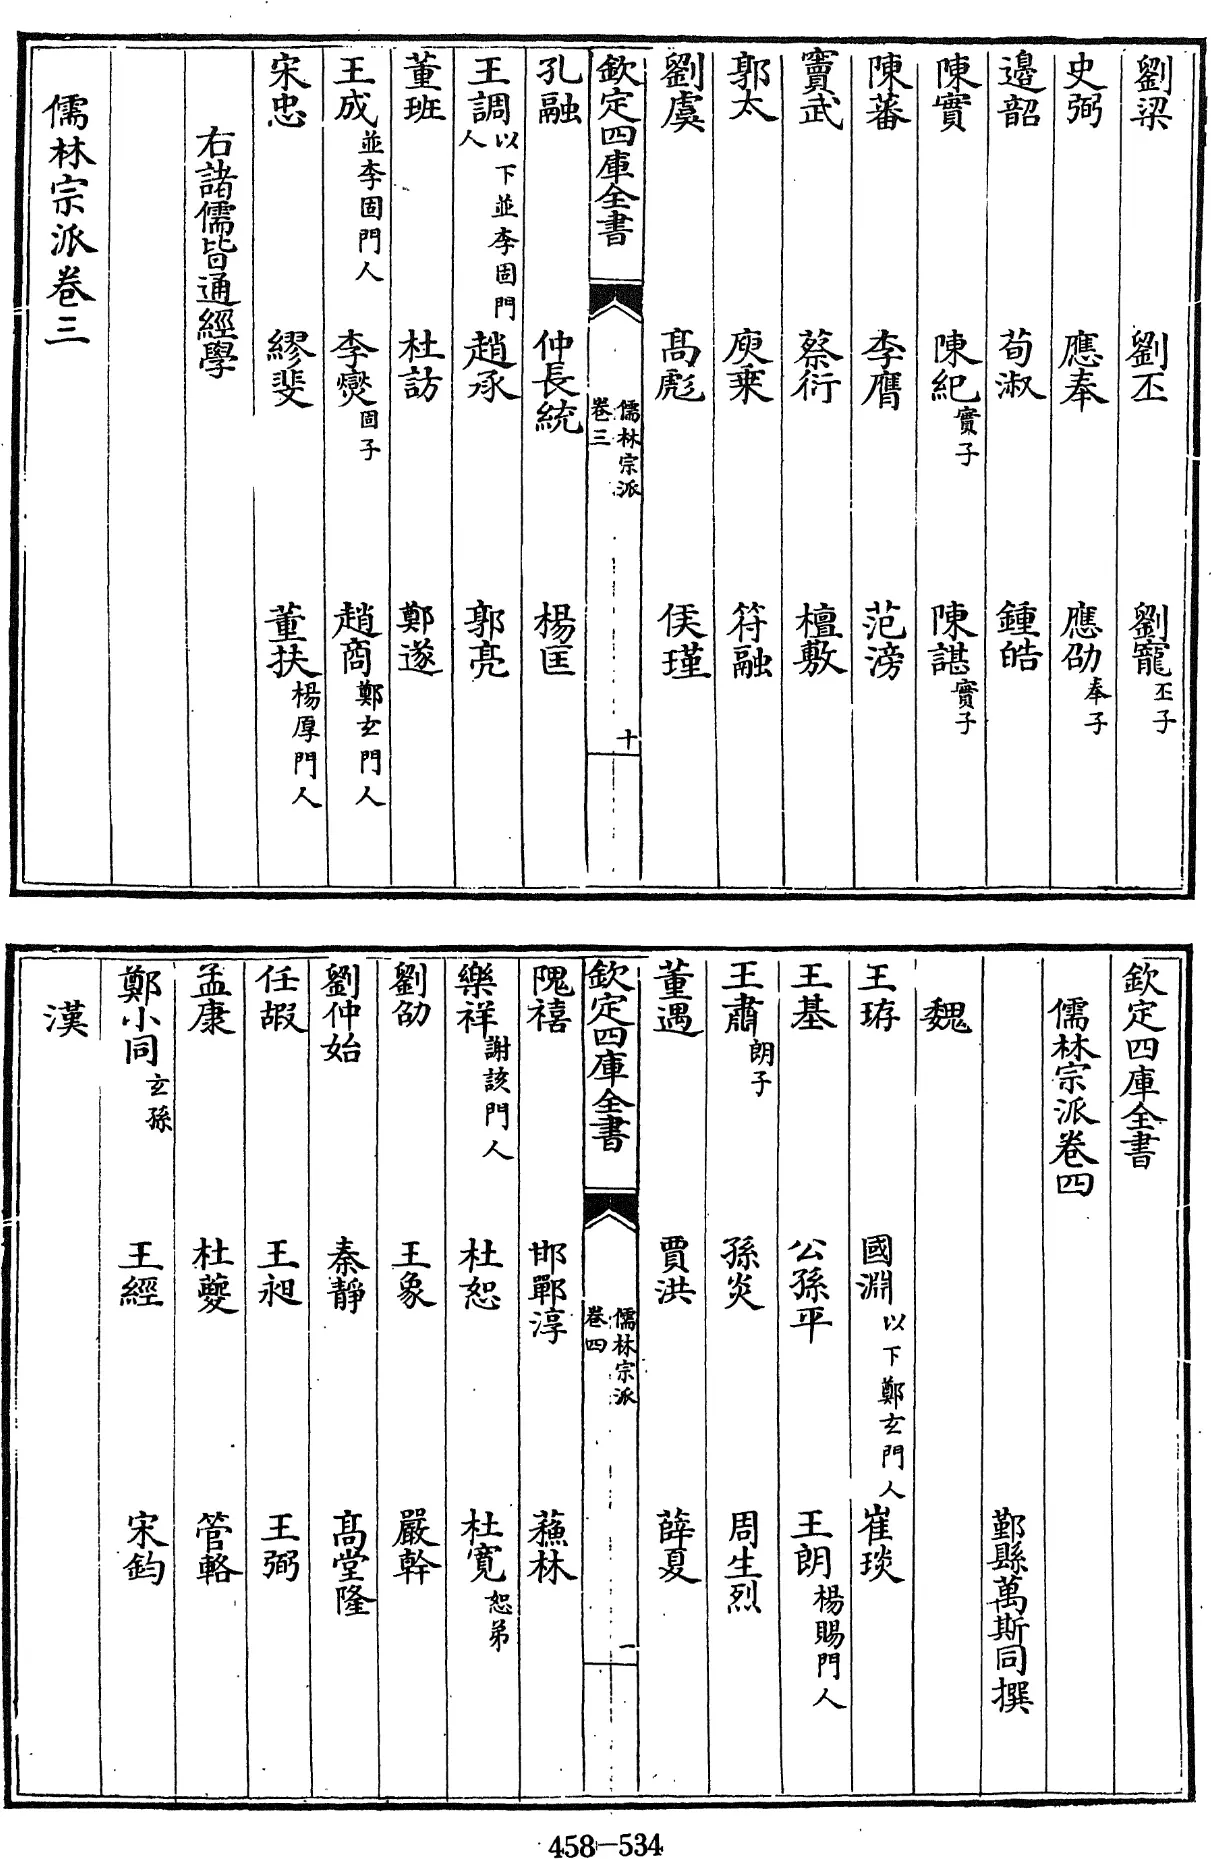 劉梁　劉丕　劉寵丕子
史弼　應奉　應劭奉子
邉韶　荀淑　鍾皓
陳實　陳紀實子　陳諶實子
陳蕃　李膺　范滂
竇武　蔡衍　檀敷
郭太　庾乗　符融
劉虞　髙彪　侯瑾
欽定四庫全書　儒林宗派卷三　十
孔融　仲長統　楊匡
王調以下並李固門人　趙承　郭亮
董班　杜訪　鄭遂
王成並李固門人　李燮固子　趙商鄭玄門人
宋忠　繆斐　董扶楊厚門人
右諸儒皆通經學
儒林宗派卷三
欽定四庫全書
儒林宗派卷四
鄞縣萬斯同撰
魏
王珔　國淵以下鄭玄門人　崔琰
王基　公孫平　王朗楊賜門人
王肅朗子　孫炎　周生烈
董遇　賈洪　薛夏
欽定四庫全書　儒林宗派卷四　一
隗禧　邯鄲淳　蘓林
樂祥謝該門人　杜恕　杜寛恕弟
劉劭　王象　嚴幹
劉仲始　秦靜　髙堂隆
任嘏　王昶　王弼
孟康　杜夔　管輅
鄭小同玄孫　王經　宋鈞
漢
458-534